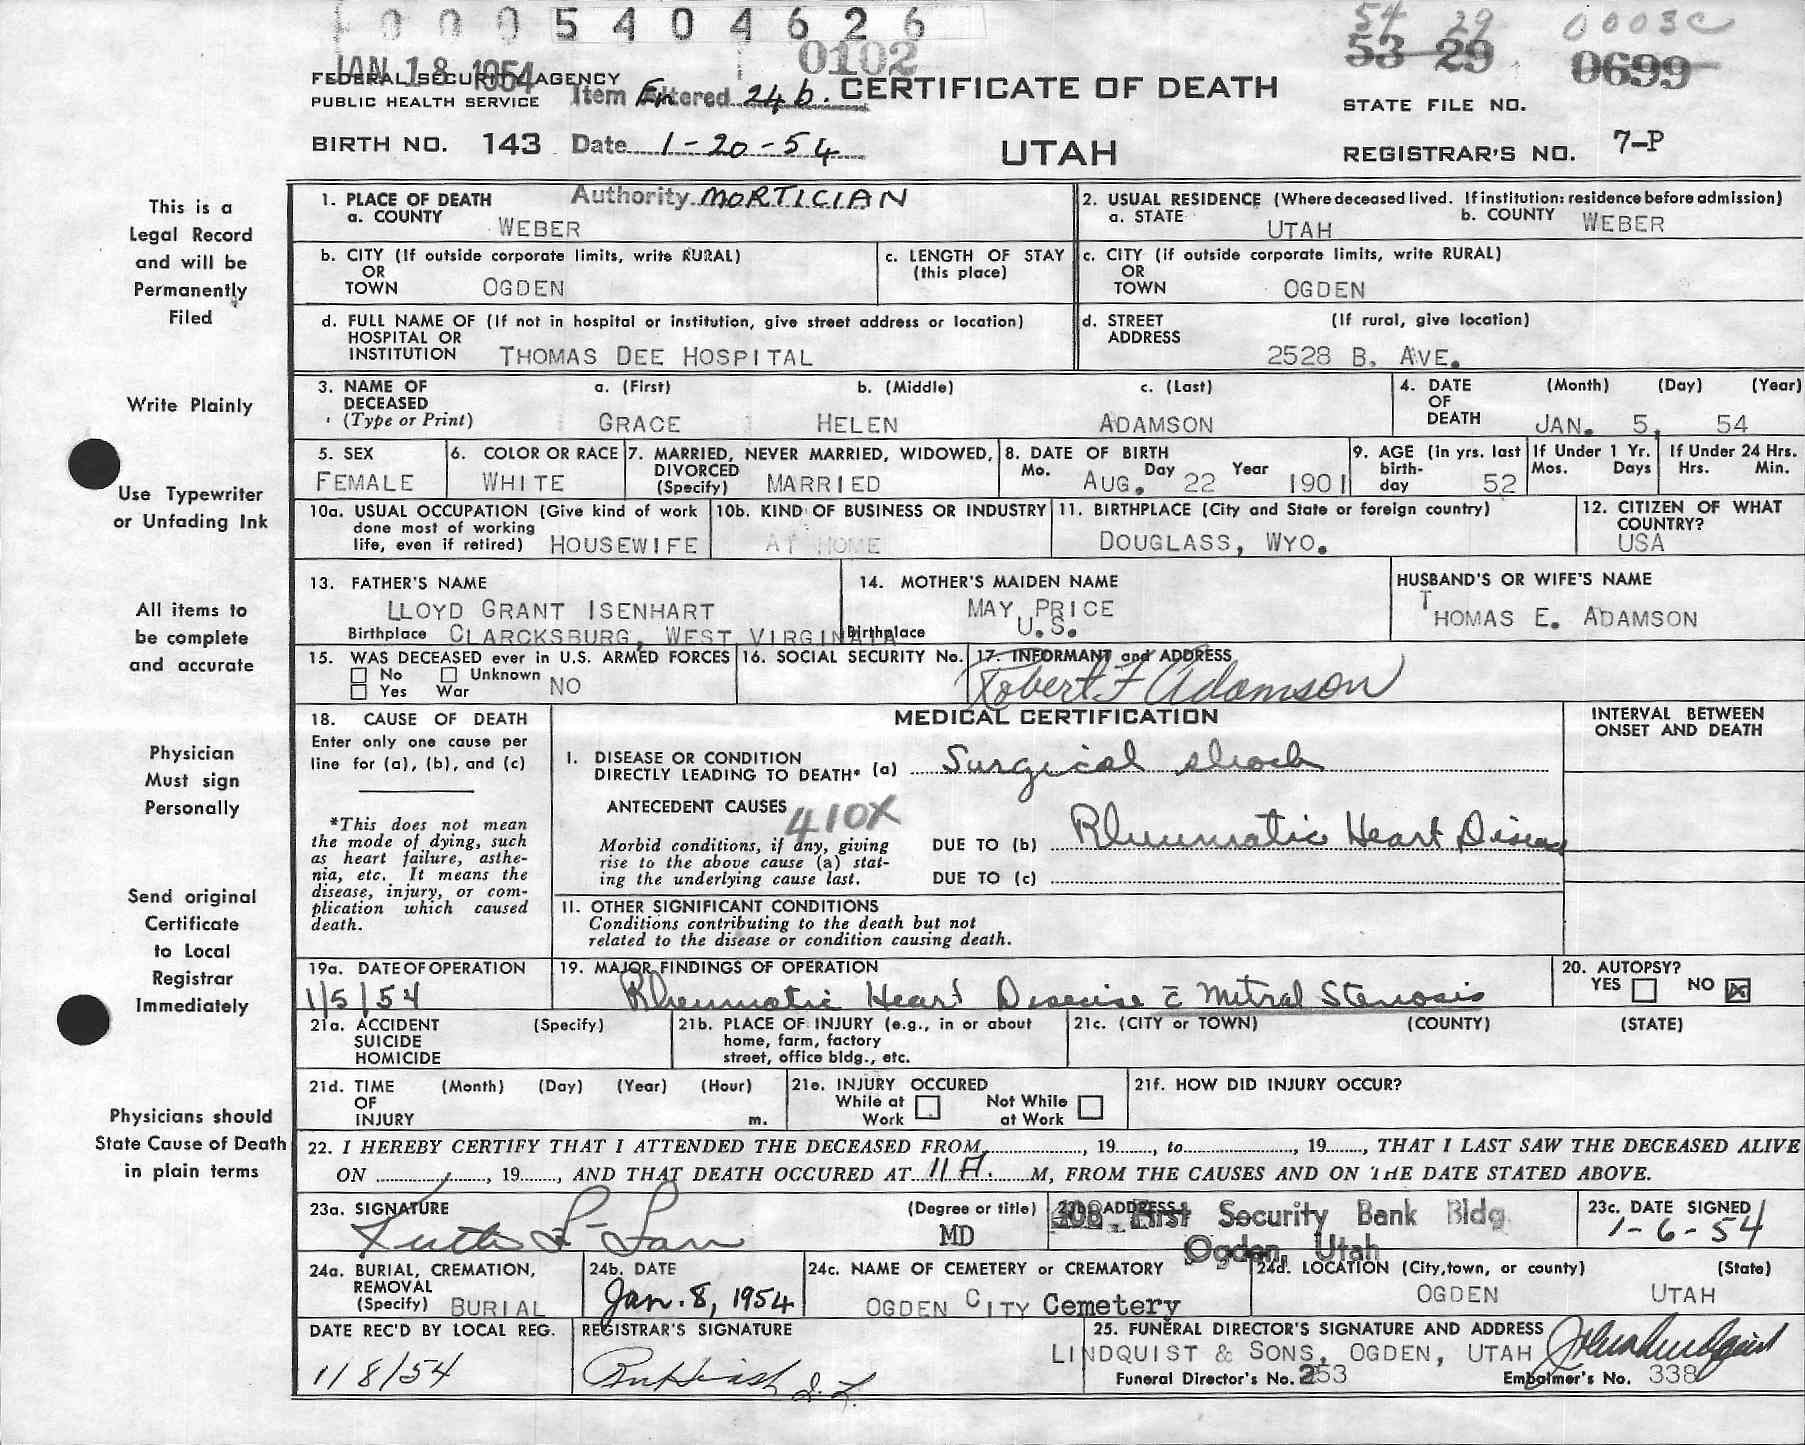 0 0 0 5 4 0 4 6 2 6
54 29 0003C
JAN 18 1954
0102
53 29 0699
FEDERAL SECURITY AGENCY
PUBLIC HEALTH SERVICE
Item Entered 24b.
CERTIFICATE OF DEATH
STATE FILE NO.
BIRTH NO. 143
Date 1-20-54
UTAH
REGISTRAR'S NO. 7-P
Authority MORTICIAN
This is a
Legal Record
and will be
Permanently
Filed
1. PLACE OF DEATH
a. COUNTY WEBER
2. USUAL RESIDENCE (Where deceased lived. If institution: residence before admission)
a. STATE UTAH b. COUNTY WEBER
b. CITY (If outside corporate limits, write RURAL)
OR
TOWN OGDEN
c. LENGTH OF STAY
(this place)
c. CITY (if outside corporate limits, write RURAL)
OR
TOWN OGDEN
d. FULL NAME OF (If not in hospital or institution, give street address or location)
HOSPITAL OR
INSTITUTION THOMAS DEE HOSPITAL
d. STREET (If rural, give location)
ADDRESS
2528 B. AVE.
Write Plainly
3. NAME OF DECEASED (Type or Print)
a. (First) b. (Middle) c. (Last)
GRACE HELEN ADAMSON
4. DATE OF DEATH (Month) (Day) (Year)
JAN. 5, 54
Use Typewriter
or Unfading Ink
5. SEX
FEMALE
6. COLOR OR RACE
WHITE
7. MARRIED, NEVER MARRIED, WIDOWED,
DIVORCED
(Specify) MARRIED
8. DATE OF BIRTH
Mo. Day Year
AUG. 22 1901
9. AGE (in yrs. last
birth-
day 52
If Under 1 Yr.
Mos. Days
If Under 24 Hrs.
Hrs. Min.
10a. USUAL OCCUPATION (Give kind of work
done most of working
life, even if retired) HOUSEWIFE
10b. KIND OF BUSINESS OR INDUSTRY
AT HOME
11. BIRTHPLACE (City and State or foreign country)
DOUGLASS, WYO.
12. CITIZEN OF WHAT
COUNTRY?
USA
All items to
be complete
and accurate
13. FATHER'S NAME
LLOYD GRANT ISENHART
Birthplace CLARCKSBURG, WEST VIRGINAIA
14. MOTHER'S MAIDEN NAME
MAY PRICE
Birthplace U.S.
HUSBAND'S OR WIFE'S NAME
THOMAS E. ADAMSON
15. WAS DECEASED ever in U.S. ARMED FORCES
No Unknown
Yes War NO
16. SOCIAL SECURITY No.
17. INFORMANT and ADDRESS
Robert F Adamson
Physician
Must sign
Personally
18. CAUSE OF DEATH
Enter only one cause per
line for (a), (b), and (c)
*This does not mean
the mode of dying, such
as heart failure, asthe-
nia, etc. It means the
disease, injury, or com-
plication which caused
death.
MEDICAL CERTIFICATION
INTERVAL BETWEEN
ONSET AND DEATH
I. DISEASE OR CONDITION
DIRECTLY LEADING TO DEATH* (a) Surgical shock
ANTECEDENT CAUSES 410X
Morbid conditions, if any, giving
rise to the above cause (a) stat-
ing the underlying cause last.
DUE TO (b) Rheumatic Heart Disease
DUE TO (c)
II. OTHER SIGNIFICANT CONDITIONS
Conditions contributing to the death but not
related to the disease or condition causing death.
Send original
Certificate
to Local
Registrar
Immediately
19a. DATE OF OPERATION
1/5/54
19. MAJOR FINDINGS OF OPERATION
Rheumatic Heart Disease c̄ Mitral Stenosis
20. AUTOPSY?
YES NO X
21a. ACCIDENT (Specify)
SUICIDE
HOMICIDE
21b. PLACE OF INJURY (e.g., in or about
home, farm, factory
street, office bldg., etc.
21c. (CITY or TOWN) (COUNTY) (STATE)
21d. TIME (Month) (Day) (Year) (Hour)
OF
INJURY m.
21e. INJURY OCCURED
While at Work Not While at Work
21f. HOW DID INJURY OCCUR?
Physicians should
State Cause of Death
in plain terms
22. I HEREBY CERTIFY THAT I ATTENDED THE DECEASED FROM, 19, to, 19, THAT I LAST SAW THE DECEASED ALIVE
ON, 19, AND THAT DEATH OCCURED AT 11 A. M, FROM THE CAUSES AND ON THE DATE STATED ABOVE.
23a. SIGNATURE (Degree or title)
MD
23b. ADDRESS
First Security Bank Bldg
Ogden, Utah
23c. DATE SIGNED
1-6-54
24a. BURIAL, CREMATION,
REMOVAL
(Specify) BURIAL
24b. DATE
Jan. 8, 1954
24c. NAME OF CEMETERY or CREMATORY
OGDEN CITY Cemetery
24d. LOCATION (City, town, or county) (State)
OGDEN UTAH
DATE REC'D BY LOCAL REG.
1/8/54
REGISTRAR'S SIGNATURE
25. FUNERAL DIRECTOR'S SIGNATURE AND ADDRESS
LINDQUIST & SONS, OGDEN, UTAH
Funeral Director's No. 253
Embalmer's No. 338